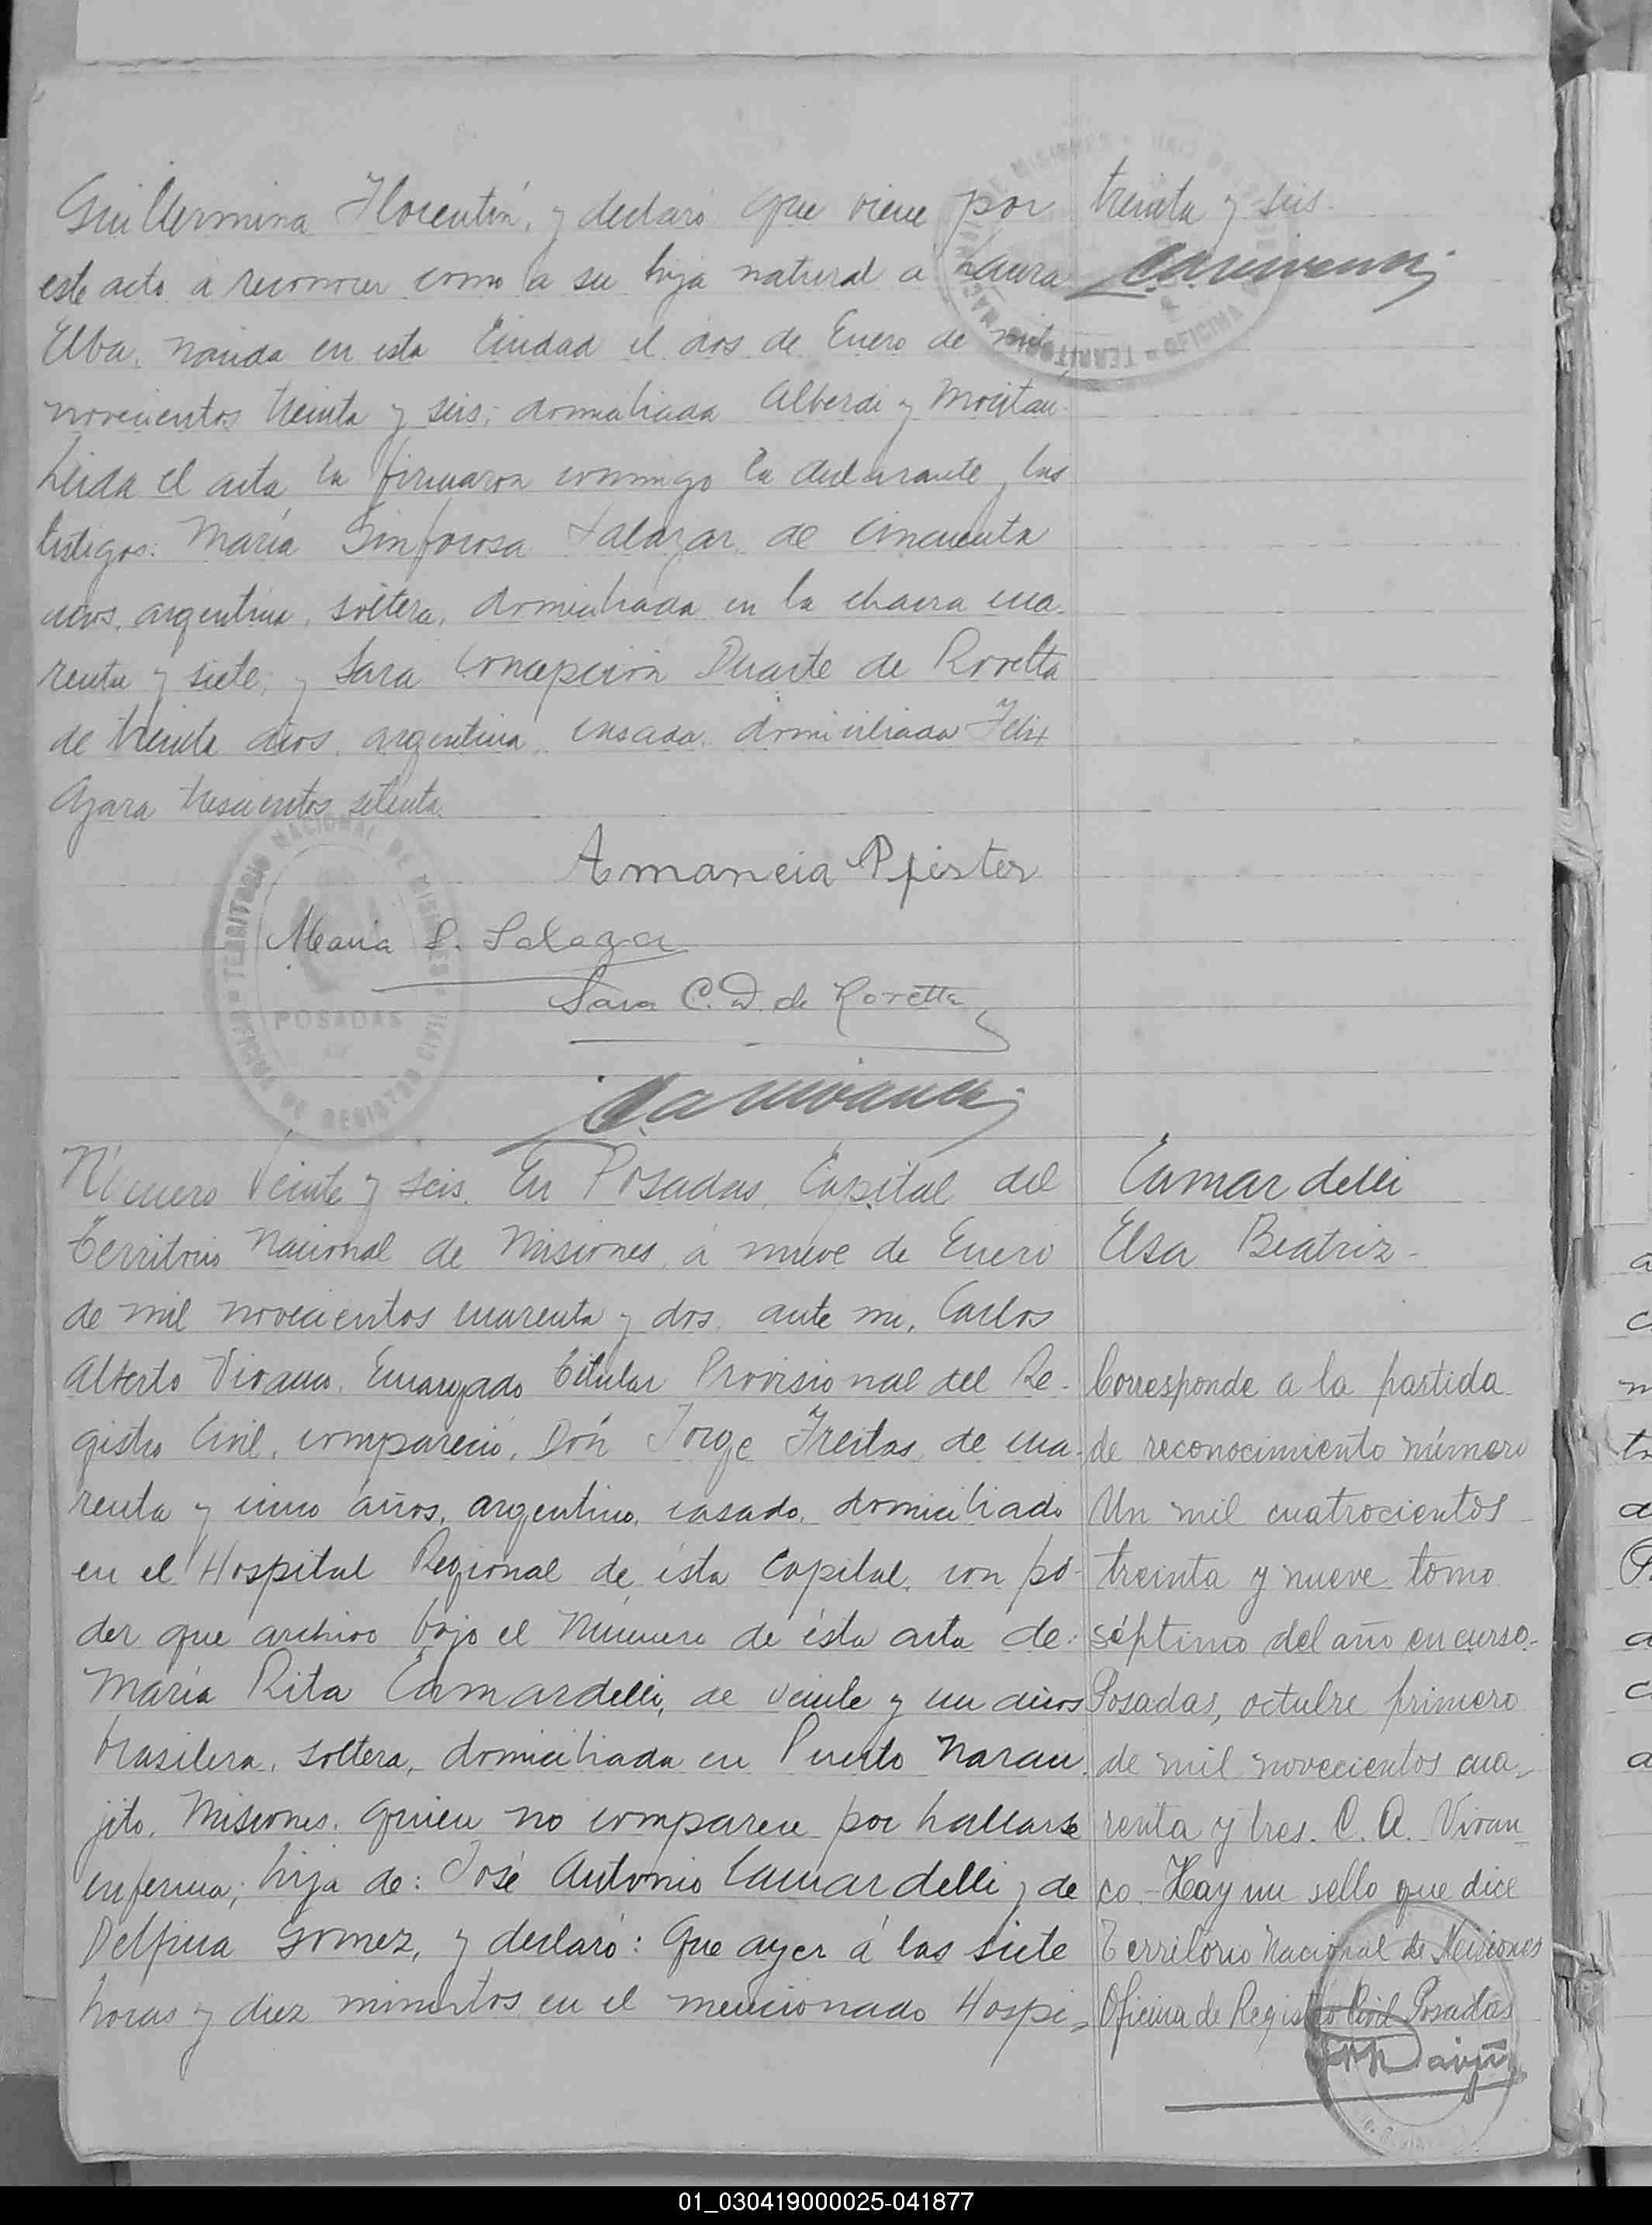 Guillermina Florentín, y declaró que viene por
este acto á reconocer como a su hija natural a Laura
Elba, nacida en esta Ciudad el dos de Enero de mil
novecientos treinta y seis; domiciliada Alberdi y
Leida el acta la firmaron conmigo la declarante y las
testigos: María Sinforosa Salazar, de cincuenta
años, argentina, soltera, domiciliada en la chacra cua-
renta y siete, y Sara Concepción Duarte de Rovetta
de treinta años, argentina, casada, domiciliada Felix
Azara trescientos setenta.
treinta y seis.
Amancia Pfister
Maria S. Salazar
Sara C. D. de Rovetta
TERRITORIO NACIONAL DE MISIONES
OFICINA DE REGISTRO CIVIL
POSADAS
Número Veinte y seis. En Posadas, Capital del
Territorio Nacional de Misiones, á nueve de Enero
de mil novecientos cuarenta y dos, ante mi, Carlos
Alberto Vivanco, Encargado Titular Provisional del Re-
gistro Civil, compareció, Dón Jorge Freitas, de cua-
renta y cinco años, argentino, casado, domiciliado
en el Hospital Regional de ésta Capital, con po-
der que archivo bajo el Número de ésta acta de:
María Rita Camardelli, de veinte y un años
brasilera, soltera, domiciliada en Puerto Naran-
jito, Misiones, quien no comparece por hallarse
enferma; hija de: José Antonio Camardelli y de
Delfina Gomez, y declaró: Que ayer á las siete
horas y diez minutos, en el mencionado Hospi-
Camardelli
Elsa Beatriz-
Corresponde a la partida
de reconocimiento número
Un mil cuatrocientos
treinta y nueve tomo
séptimo del año en curso-
Posadas, octubre primero
de mil novecientos cua-
renta y tres. C. A. Vivan
co.- Hay un sello que dice
Territorio Nacional de Misiones
Oficina de Registro Civil Posadas
01_030419000025-041877